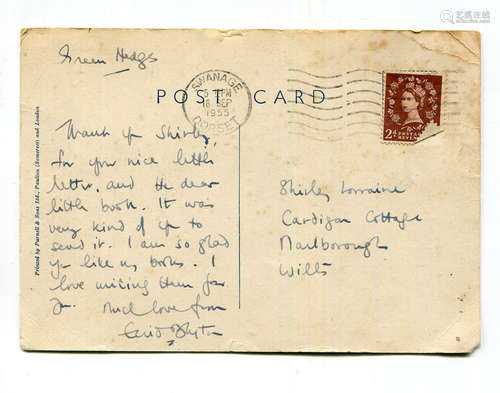 艺典在线
yidianchina.com
Green Hedges
SWANAGE
5 PM
8 SEP
1955
DORSET
POST CARD
2D
POSTAGE
REVENUE
Printed by Purnell & Sons Ltd., Paulton (Somerset) and London
Thank you Shirley,
for your nice little
letter, and the dear
little book. It was
very kind of you to
send it. I am so glad
you like my books. I
love writing them for
you. Much love from
Enid Blyton
Shirley Lorraine
Cardigan Cottage
Marlborough
Wilts